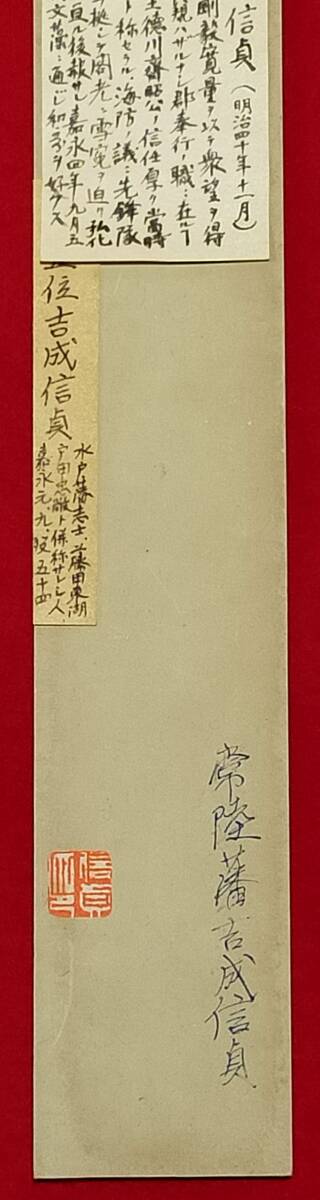 信貞(明治四十年十一月)
剛毅寛量ヲ以テ衆望ヲ得
親ハザルナシ郡奉行ノ職ニ在ルー
主徳川齊昭公ノ信任厚ク當時
ト称セラル海防ノ議ニ先鋒隊
閣老ニ雪寃ヲ迫リ弘化
後赦サレ嘉永四年九月五
文藻ニ通ジ和歌ヲ好クス
位吉成信貞
水戸藩志士、藤田東湖
戸田忠敞ト併称サレシ人
嘉永元、九、歿五十四
常陸藩吉成信貞
信貞